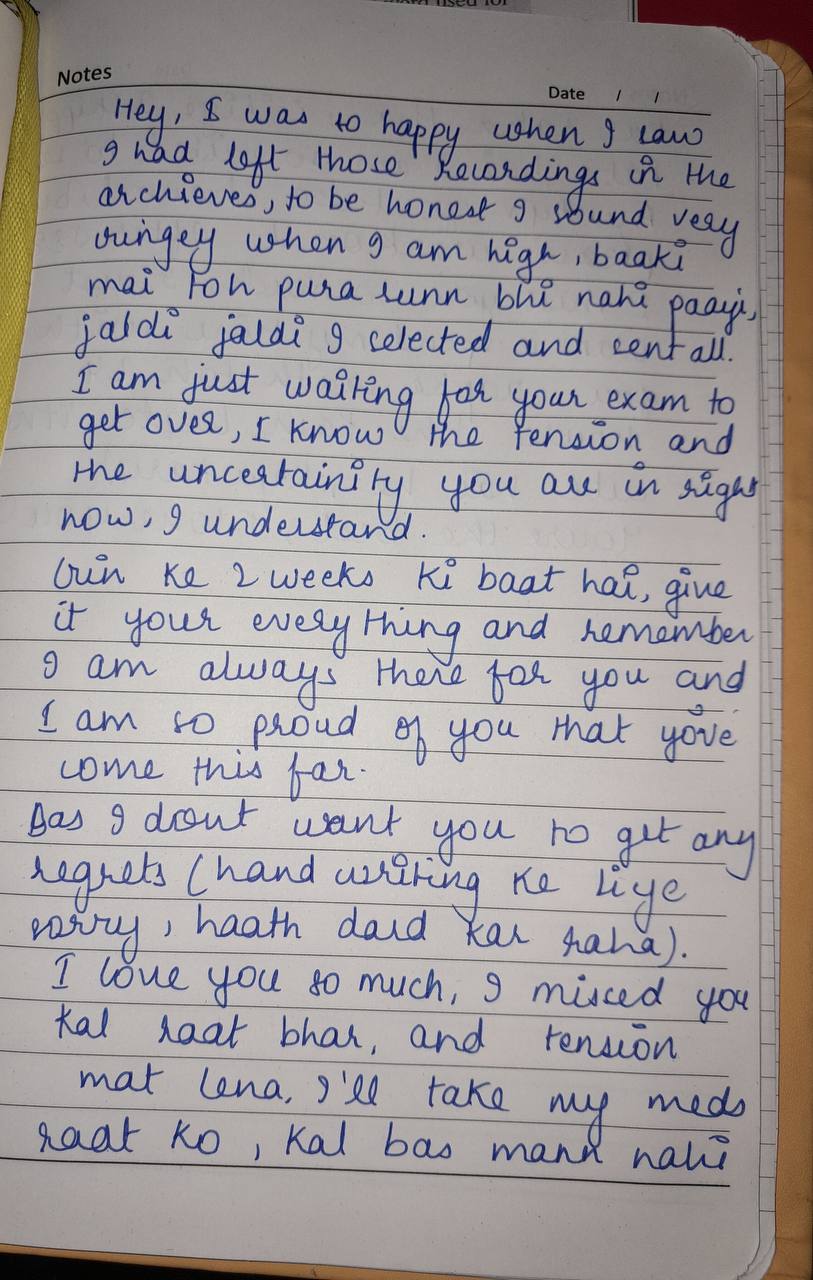 Notes
Date / /
Hey, I was so happy when I saw
I had left those recordings in the
archieves, to be honest I sound very
cringey when I am high, baaki
mai toh pura sunn bhi nahi paayi,
jaldi jaldi I selected and sent all.
I am just waiting for your exam to
get over, I know the tension and
the uncertainity you are in right
now, I understand.
Grin ke 2 weeks ki baat hai, give
it your everything and remember
I am always there for you and
I am so proud of you that yo've
come this far.
Bas I dont want you to get any
regrets (hand writing ke liye
sorry, haath dard kar raha).
I love you so much, I missed you
kal raat bhar, and tension
mat lena, I'll take my meds
raat ko, kal bas mann nahi